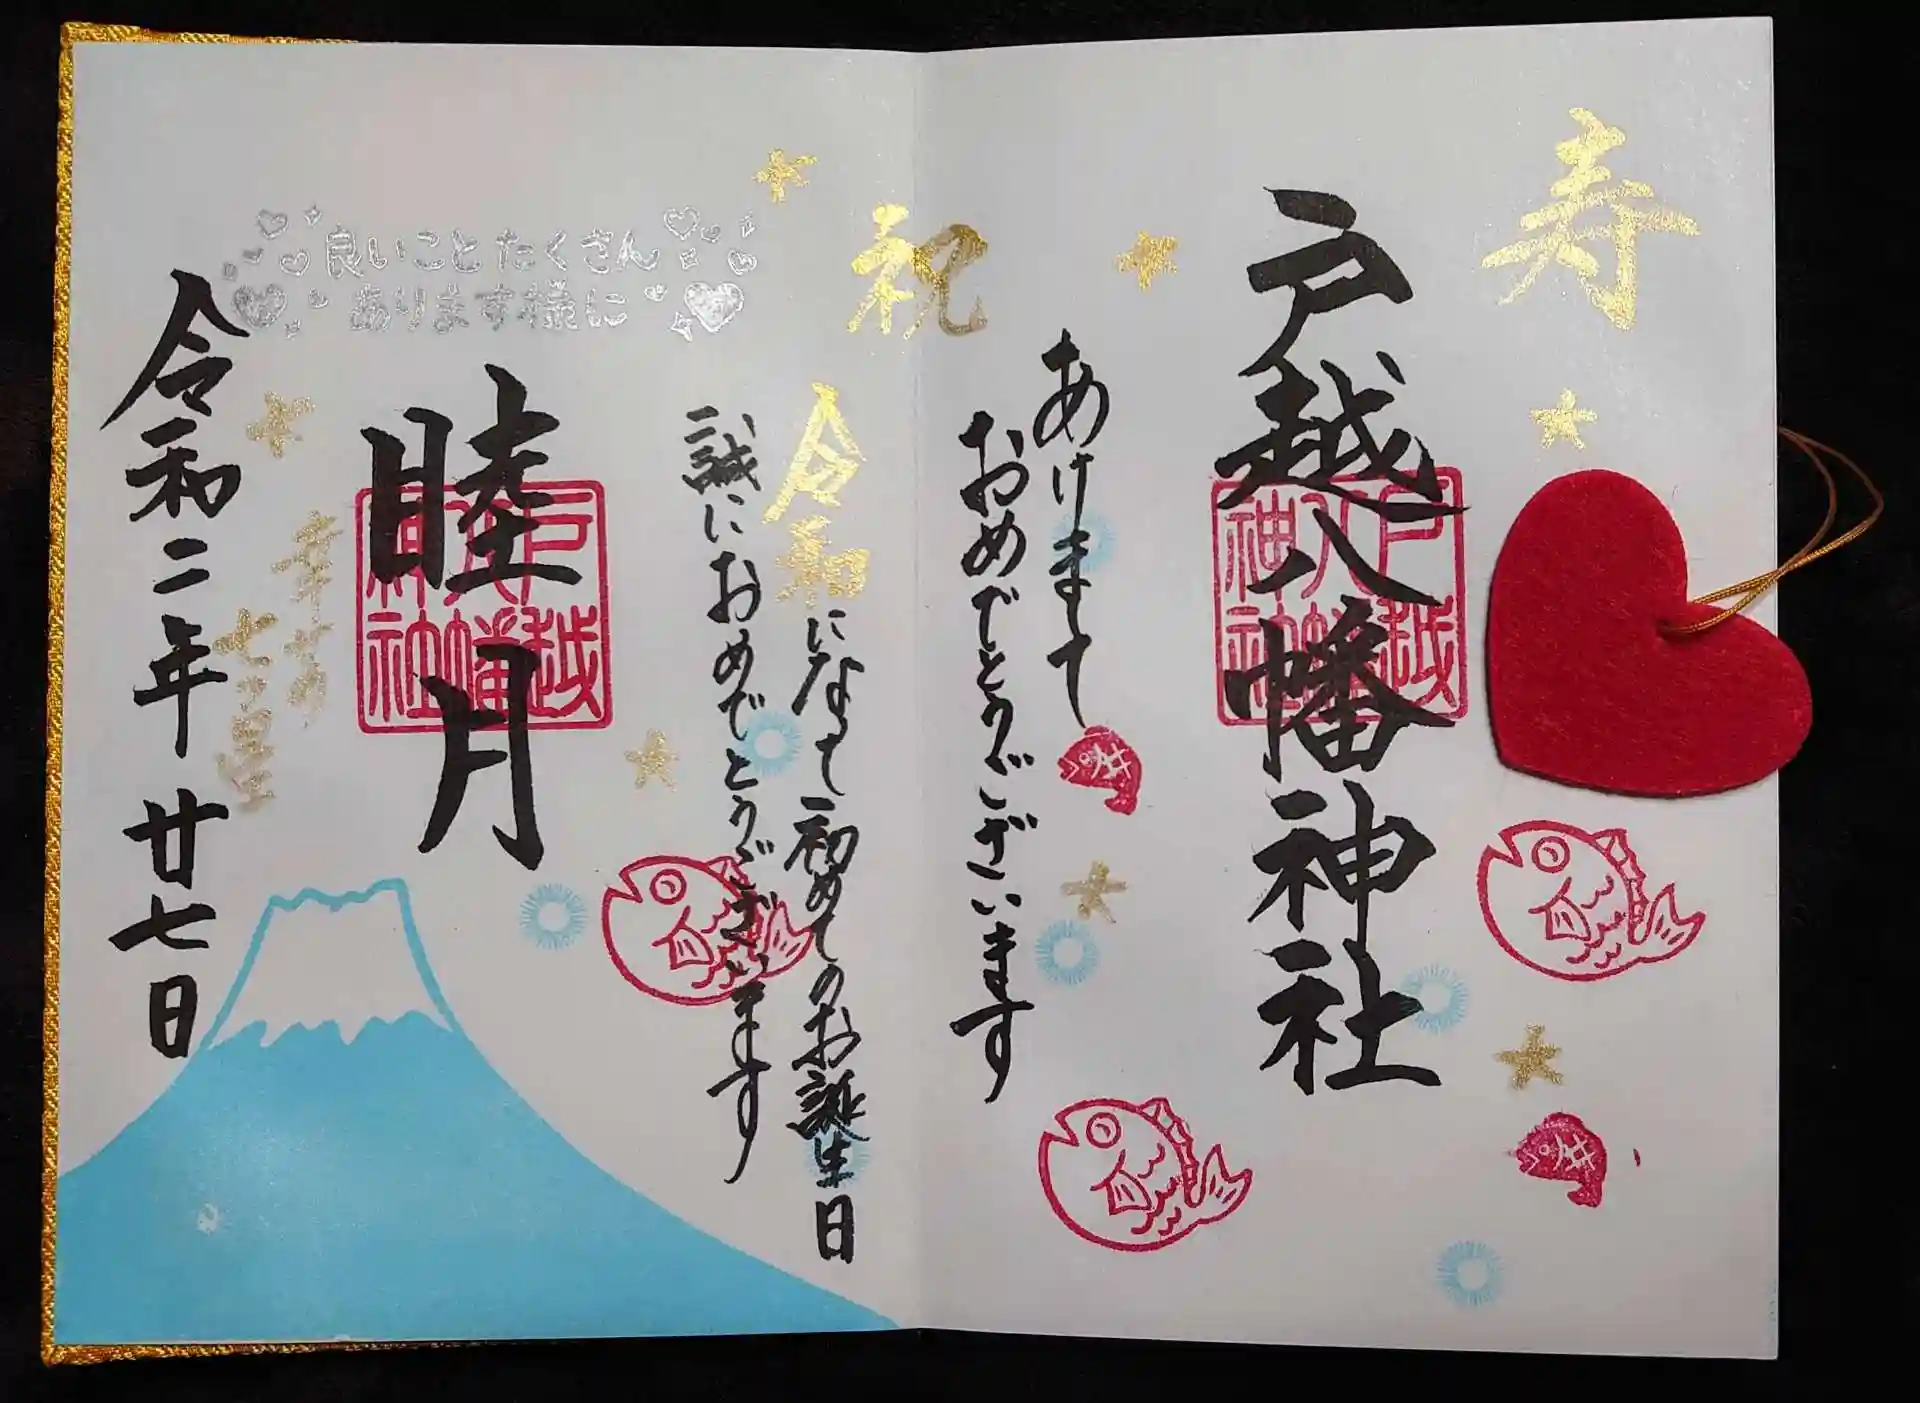 寿
戸越八幡神社
戸越
八幡
神社
あけまして
おめでとうございます
祝
令和になって初めてのお誕生日
誠におめでとうございます
良いことたくさん
あります様に
睦月
戸越
八幡
神社
幸せの
七つ星
令和二年廿七日